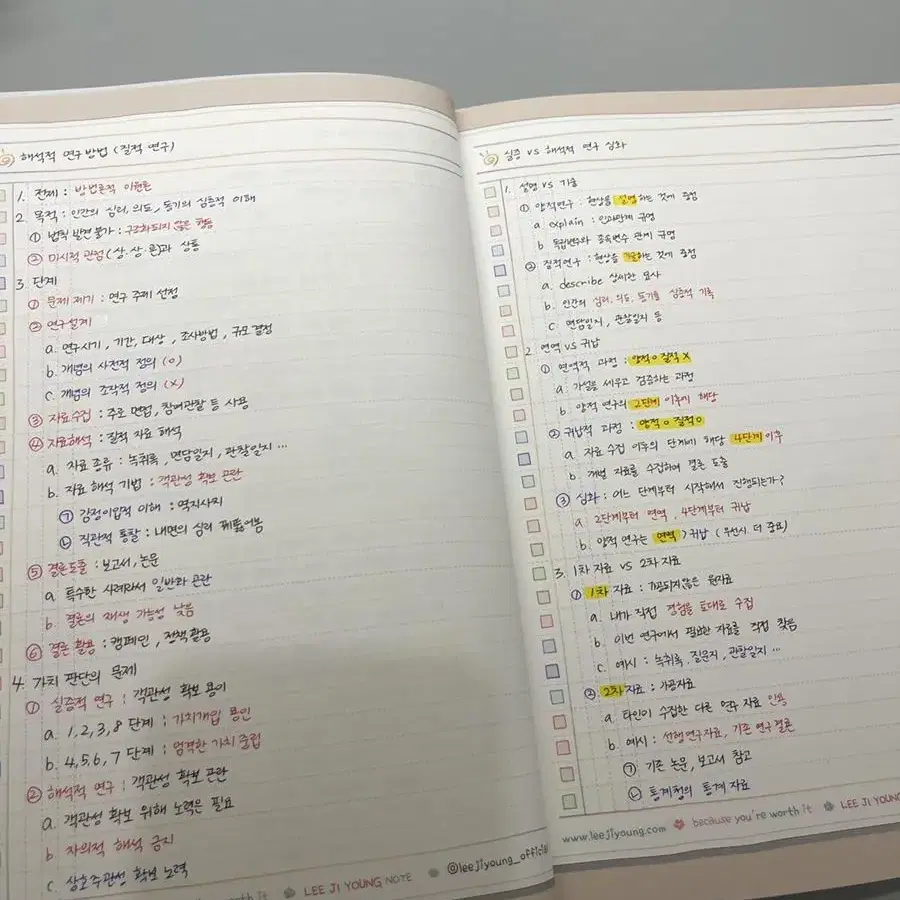 해석적 연구방법 (질적 연구)
1. 전제 : 방법론적 이원론
2. 목적 : 인간의 심리, 의도, 동기의 심층적 이해
① 법칙 발견 불가 : 구조화되지 않은 행동
② 미시적 관점 (상.상.론)과 상통
3. 단계
① 문제 제기 : 연구 주제 선정
② 연구설계
a. 연구시기, 기간, 대상, 조사방법, 규모 결정
b. 개념의 사전적 정의 (o)
c. 개념의 조작적 정의 (x)
③ 자료수집 : 주로 면접, 참여관찰 등 사용
④ 자료해석 : 질적 자료 해석
a. 자료 종류 : 녹취록, 면담일지, 관찰일지 ...
b. 자료 해석 기법 : 객관성 확보 곤란
㉠ 감정이입적 이해 : 역지사지
㉡ 직관적 통찰 : 내면의 심리 꿰뚫어봄
⑤ 결론도출 : 보고서, 논문
a. 특수한 사례라서 일반화 곤란
b. 결론의 재생 가능성 낮음
⑥ 결론 활용 : 캠페인, 정책활용
4. 가치 판단의 문제
① 실증적 연구 : 객관성 확보 용이
a. 1, 2, 3, 8 단계 : 가치개입 용인
b. 4, 5, 6, 7 단계 : 엄격한 가치중립
② 해석적 연구 : 객관성 확보 곤란
a. 객관성 확보 위해 노력은 필요
b. 자의적 해석 금지
c. 상호주관성 확보 노력
worth it LEE JI YOUNG NOTE @leejiyoung_official
실증 vs 해석적 연구 심화
1. 설명 vs 기술
① 양적연구 : 현상을 설명하는 것에 중점
a. explain : 인과관계 규명
b. 독립변수와 종속변수 관계 규명
② 질적연구 : 현상을 기술하는 것에 중점
a. describe 상세한 묘사
b. 인간의 심리, 의도, 동기를 심층적 기록
c. 면담일지, 관찰일지 등
2. 연역 vs 귀납
① 연역적 과정 : 양적 o 질적 x
a. 가설을 세우고 검증하는 과정
b. 양적 연구의 2단계 이후에 해당
② 귀납적 과정 : 양적 o 질적 o
a. 자료 수집 이후의 단계에 해당 4단계 이후
b. 개별 자료를 수집하여 결론 도출
③ 심화 : 어느 단계부터 시작해서 진행되는가?
a. 2단계부터 연역, 4단계부터 귀납
b. 양적 연구는 연역 > 귀납 (우선시. 더 중요)
3. 1차 자료 vs 2차 자료
① 1차 자료 : 가공되지않은 원자료
a. 내가 직접 경험을 토대로 수집
b. 이번 연구에서 필요한 자료를 직접 찾음
c. 예시 : 녹취록, 질문지, 관찰일지 ...
② 2차 자료 : 가공자료
a. 타인이 수집한 다른 연구 자료 인용
b. 예시 : 선행연구자료, 기존 연구결론
㉠ 기존 논문, 보고서 참고
㉡ 통계청의 통계 자료
www.leejiyoung.com because you're worth it LEE JI YOUNG